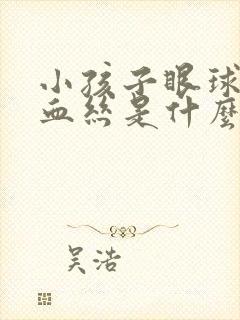 小孩子眼球
血丝是什麼
吴浩